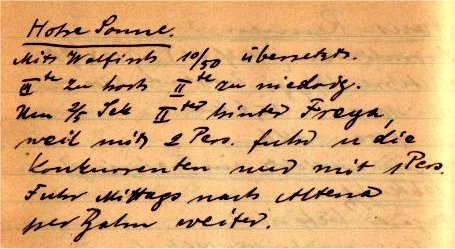 Hohe Sonne.
Mit Walfisch 10/50 übersetzt.
III te zu hoch II te zu niedrig.
Um 2/5 Sek II ter hinter Freya,
weil mit 2 Pers. fuhr u die
Konkurrenten nur mit 1 Pers.
Fuhr Mittags nach Altena
per Bahn weiter.